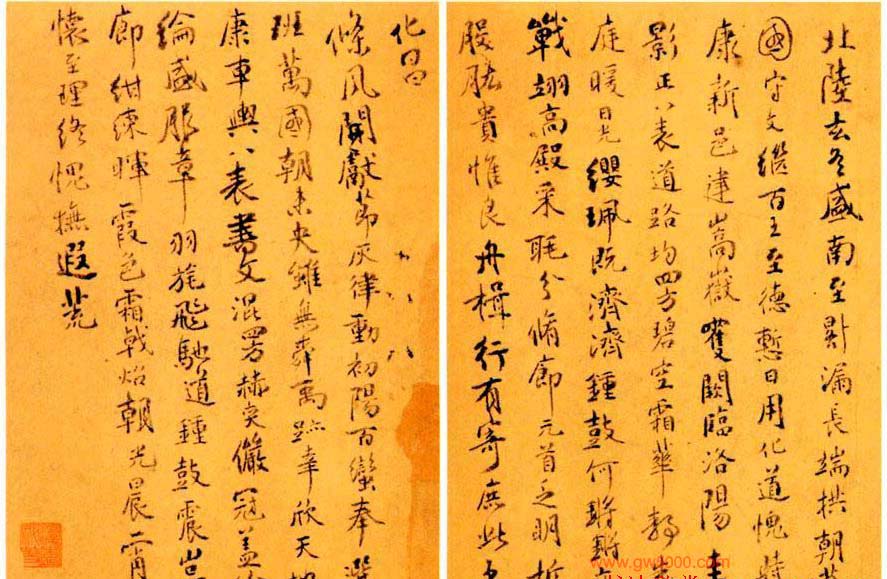 北陸玄冬盛南至晷漏長端拱朝
國守文繼百王至德慙日用化道愧時
康新邑建嵩嶽雙闕臨洛陽圭
影正八表道路均四方碧空霜華静
庭暖日光纓珮既濟濟鍾鼓何鏘鏘
戟翊高殿采眊分脩廊元首乏明哲
股肱貴惟良舟楫行有寄庶此
化昌
條風開獻節灰律動初陽百蠻奉
萬國朝未央雖無舜禹跡幸欣天
康車輿八表書文混四方赫奕儼冠盖
綸盛服章羽旄飛馳道鍾鼓震
廊組練暉霞色霜戟焰朝光晨宵
懷至理終愧撫遐荒